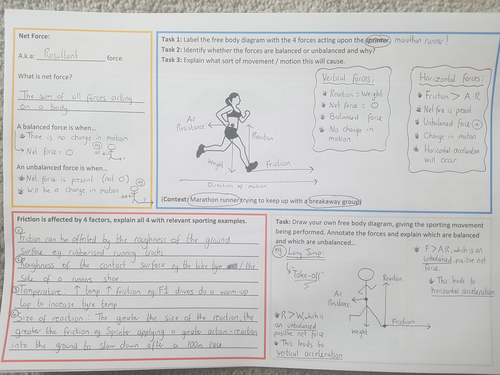 Net Force:
A.k.a: Resultant force.
What is net force?
The sum of all forces acting
on a body.
A balanced force is when...
There is no change in motion
↳ Net force = 0
eg
An unbalanced force is when...
Net force is present (not 0)
Will be a change in motion
eg
Task 1: Label the free body diagram with the 4 forces acting upon the sprinter. marathon runner!
Task 2: Identify whether the forces are balanced or unbalanced and why?
Task 3: Explain what sort of movement / motion this will cause.
Air
Resistance
Reaction
Weight
Friction
Direction of motion
Vertical forces:
Reaction = Weight
Net force = 0
Balanced force
No change in
motion.
Horizontal forces:
Friction > A.R
Net force is present
Unbalanced force +
Change in motion
Horizontal acceleration
will occur.
(Context: Marathon runner trying to keep up with a breakaway group)
Friction is affected by 4 factors, explain all 4 with relevant sporting examples.
1 Friction can be affected by the roughness of the ground
surface eg. rubberised running tracks
2 Roughness of the contact surface eg the bike tyre / the
sole of a runners shoe
3 Temperature: ↑ temp ↑ friction eg F1 drivers do a warm-up
lap to increase tyre temp.
4 Size of reaction: The greater the size of the reaction, the
greater the friction eg Sprinter applying a greater action-reaction
into the ground to slow down after a 100m race.
Task: Draw your own free body diagram, giving the sporting movement
being performed. Annotate the forces and explain which are balanced
and which are unbalanced...
eg Long Jump:
↳ Take-off
Air
Resistance
Reaction
Friction
Weight
R > W, which is
an unbalanced
positive net force
This leads to
vertical acceleration
F > AR, which is an
unbalanced, positive net
force.
This leads to
horizontal acceleration